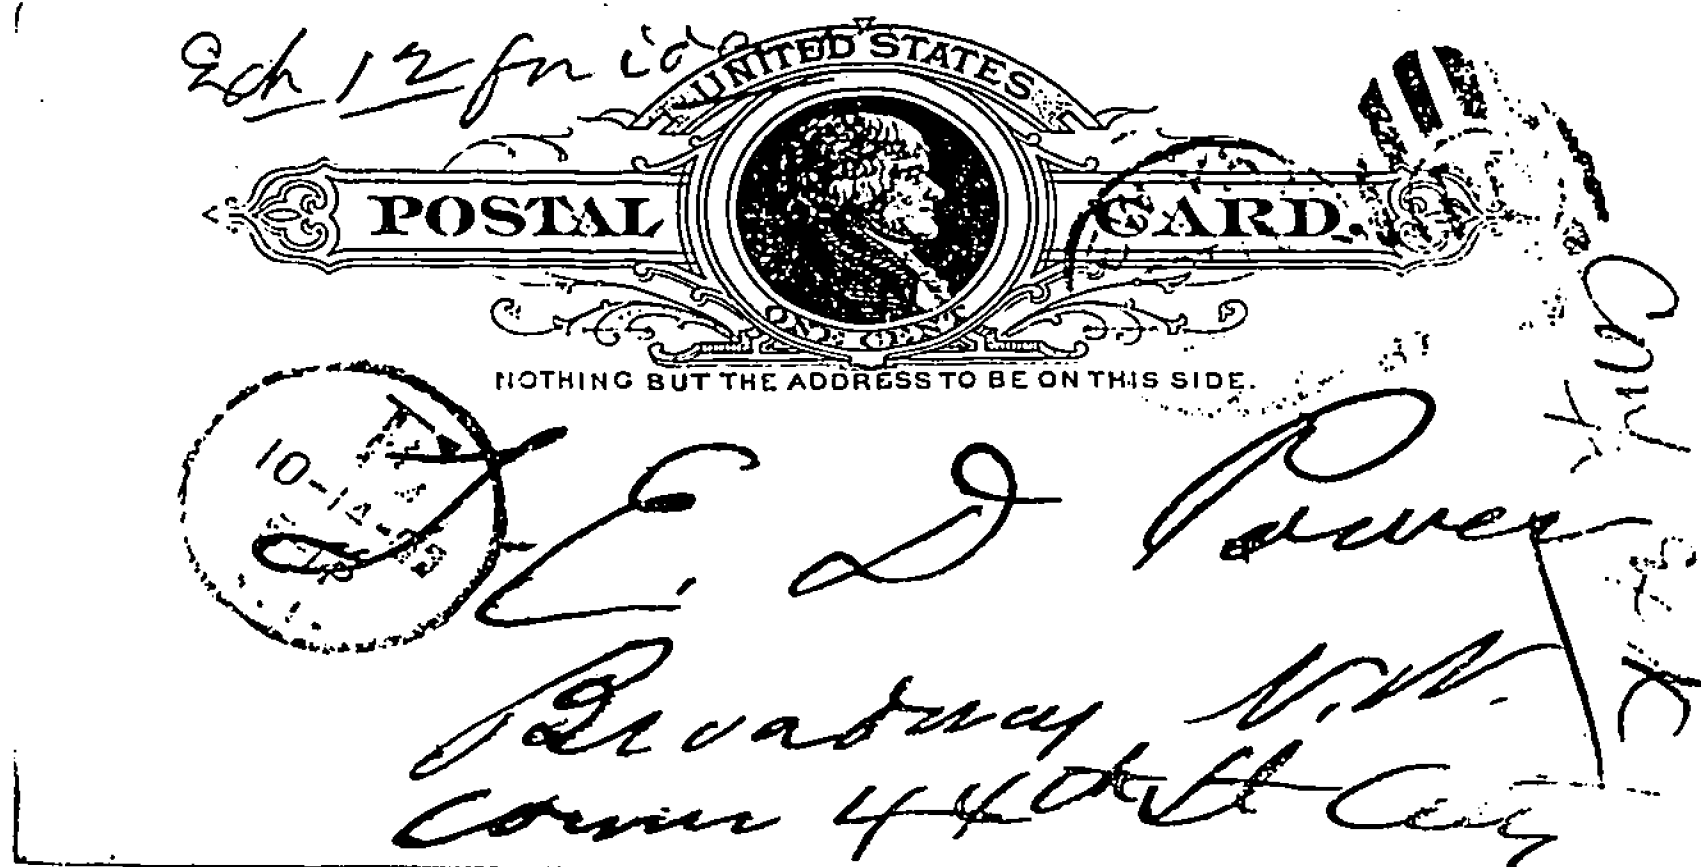 12 for
UNITED STATES
POSTAL CARD.
ONE CENT
NOTHING BUT THE ADDRESS TO BE ON THIS SIDE.
10-14-
E. D Power
Broadway N.W.
corner 44th St City